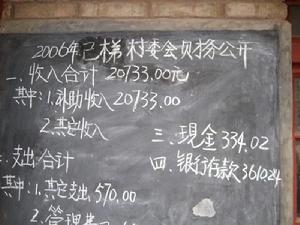 2006年已梯村委会贝务公开
一、收入合计 20733.00元
其中:1.补助收入20733.00
2.其它收入
三、现金334.02
二、支出合计
四、银行存款361024
其中:1.其它支出,570.00
2.管理费